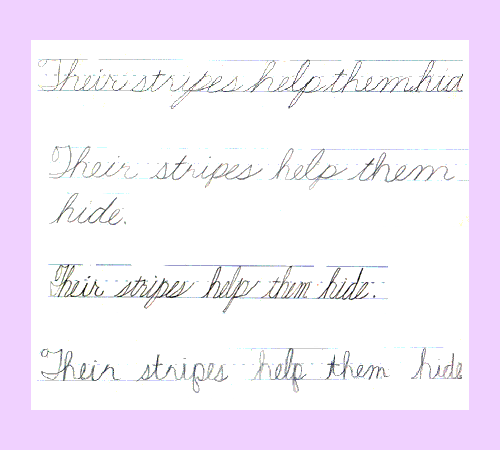 Their stripes help them hid
Their stripes help them
hide.
Their stripes help them hide.
Their stripes help them hide